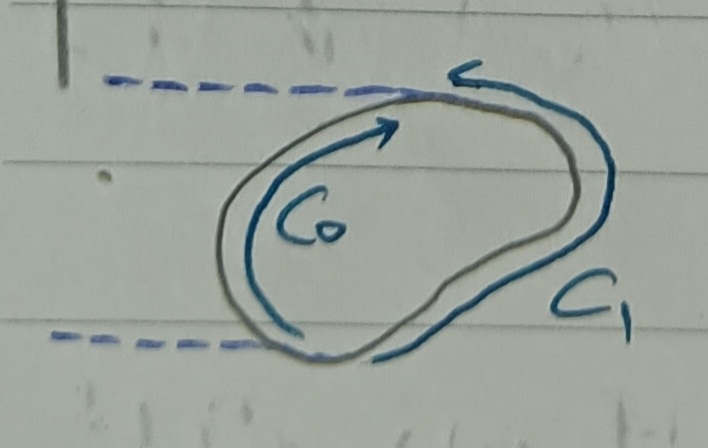 C₀
C₁